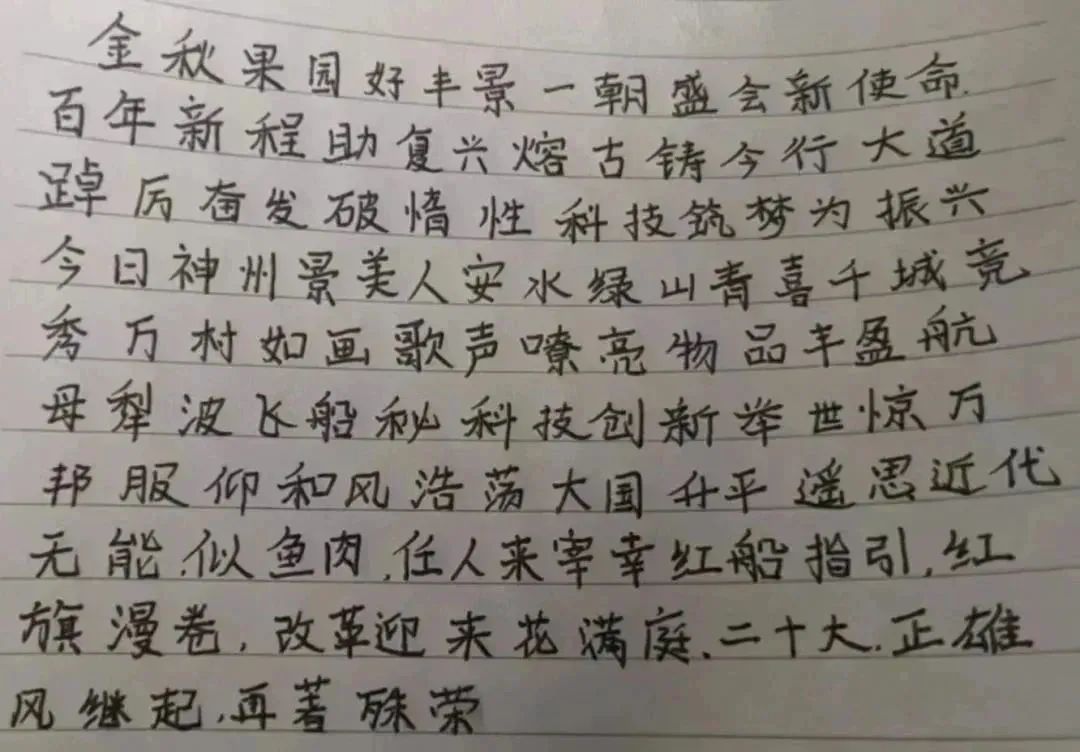 金秋果园好丰景一朝盛会新使命.
百年新程助复兴熔古铸今行大道
踔厉奋发破惰性科技筑梦为振兴
今日神州景美人安水绿山青喜千城竞
秀万村如画歌声嘹亮物品丰盈航
母犁波飞船秘科技创新举世惊万
邦服仰和风浩荡大国升平遥思近代
无能.似鱼肉.任人来宰幸红船指引.红
旗漫卷.改革迎来花满庭.二十大.正雄
风继起.再著殊荣